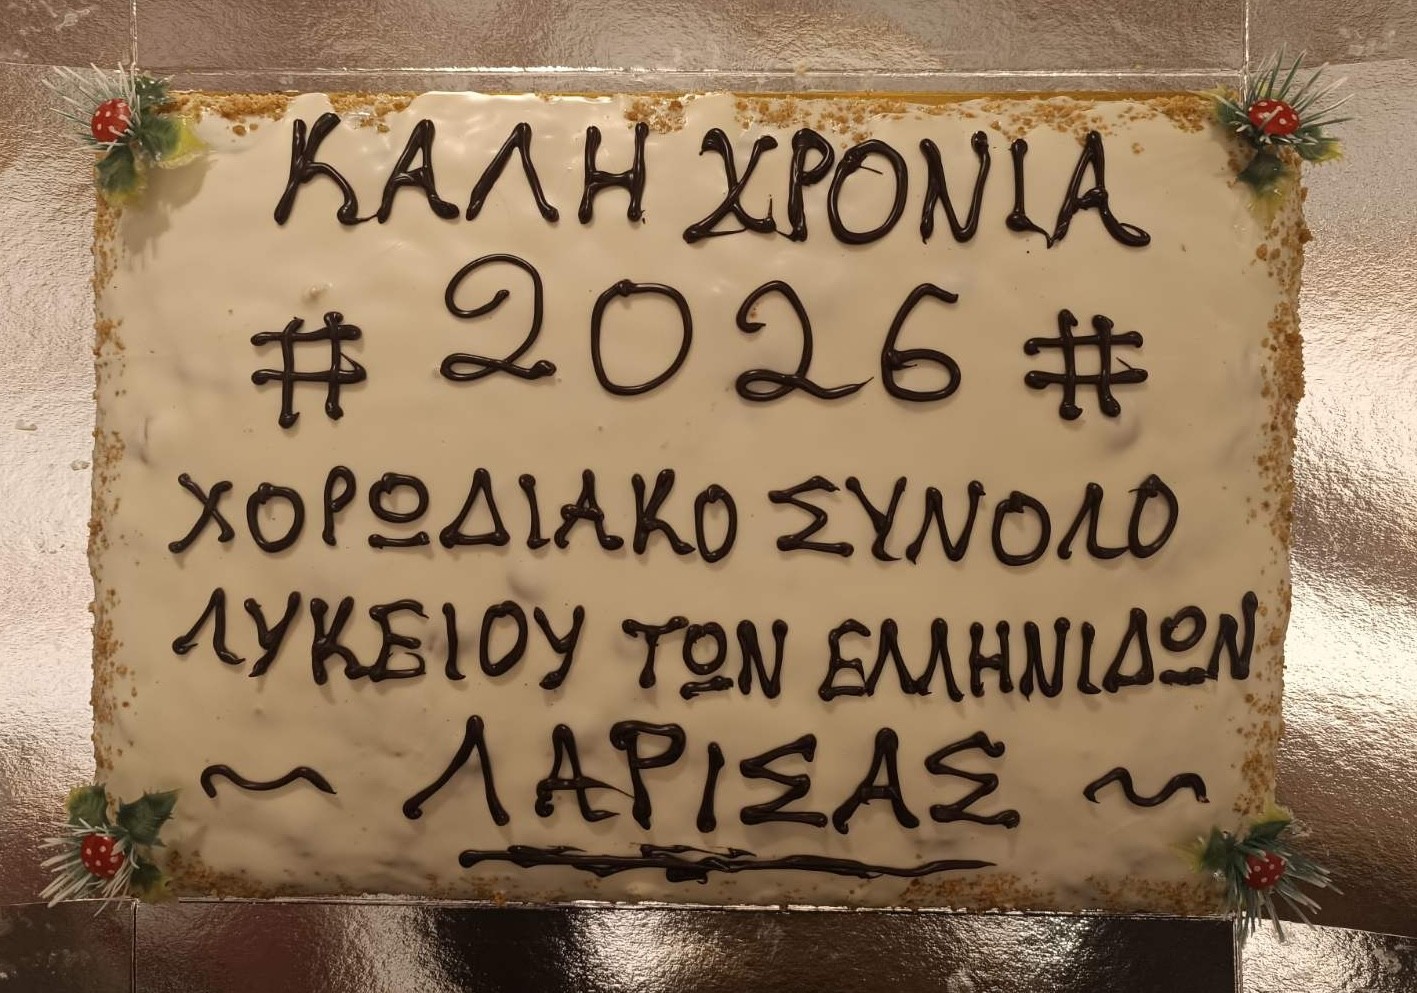 ΚΑΛΗ ΧΡΟΝΙΑ
# 2026 #
ΧΟΡΩΔΙΑΚΟ ΣΥΝΟΛΟ
ΛΥΚΕΙΟΥ ΤΩΝ ΕΛΛΗΝΙΔΩΝ
~ ΛΑΡΙΣΑΣ ~